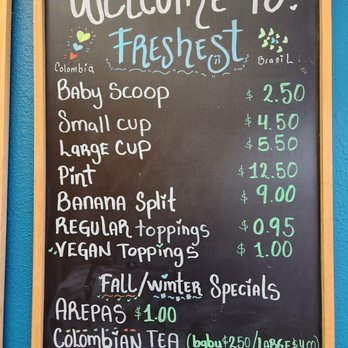 WELCOME TO!
FRESHEST
Colombia
BraziL
BaBy Scoop $ 2.50
Small cup $ 4.50
Large Cup $ 5.50
Pint $ 12.50
BaNaNa Split $ 9.00
REGULAR toppings $ 0.95
VEGAN Toppings $ 1.00
FALL/winter Specials
AREPAS $1.00
COlOMBiAN TEA (baby$2.50/LARGE$4.00)